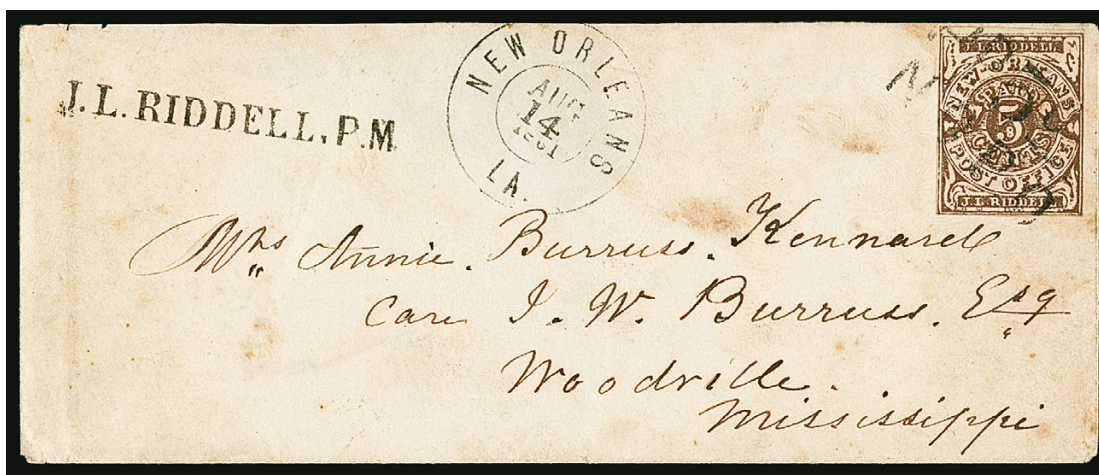 J. L. RIDDELL, P.M.
NEW ORLEANS
AUG
14
1861
LA.
J. L. RIDDELL
NEW-ORLEANS
PAID
5
CENTS
POST OFFICE
J. L. RIDDELL
Mrs Annie. Burruss. Kennard
Care J. W. Burruss. Esq
Woodville.
Mississippi